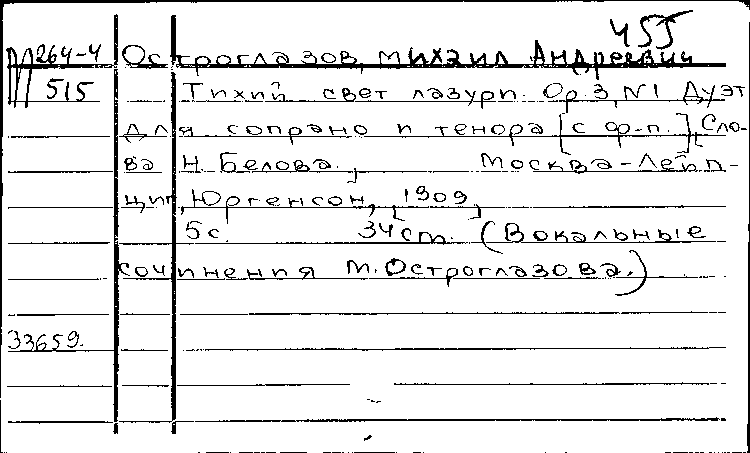 455
М 264-4 Остроглазов, Михаил Андреевич
515 Тихий свет лазури. Op. 3, N1 Дуэт
для сопрано и тенора [с ф-п.], Сло-
ва Н. Белова., Москва-Лейп-
циг, Юргенсон, [1909]
5с. 34 cm. (Вокальные
сочинения М. Остроглазова.)
33659.